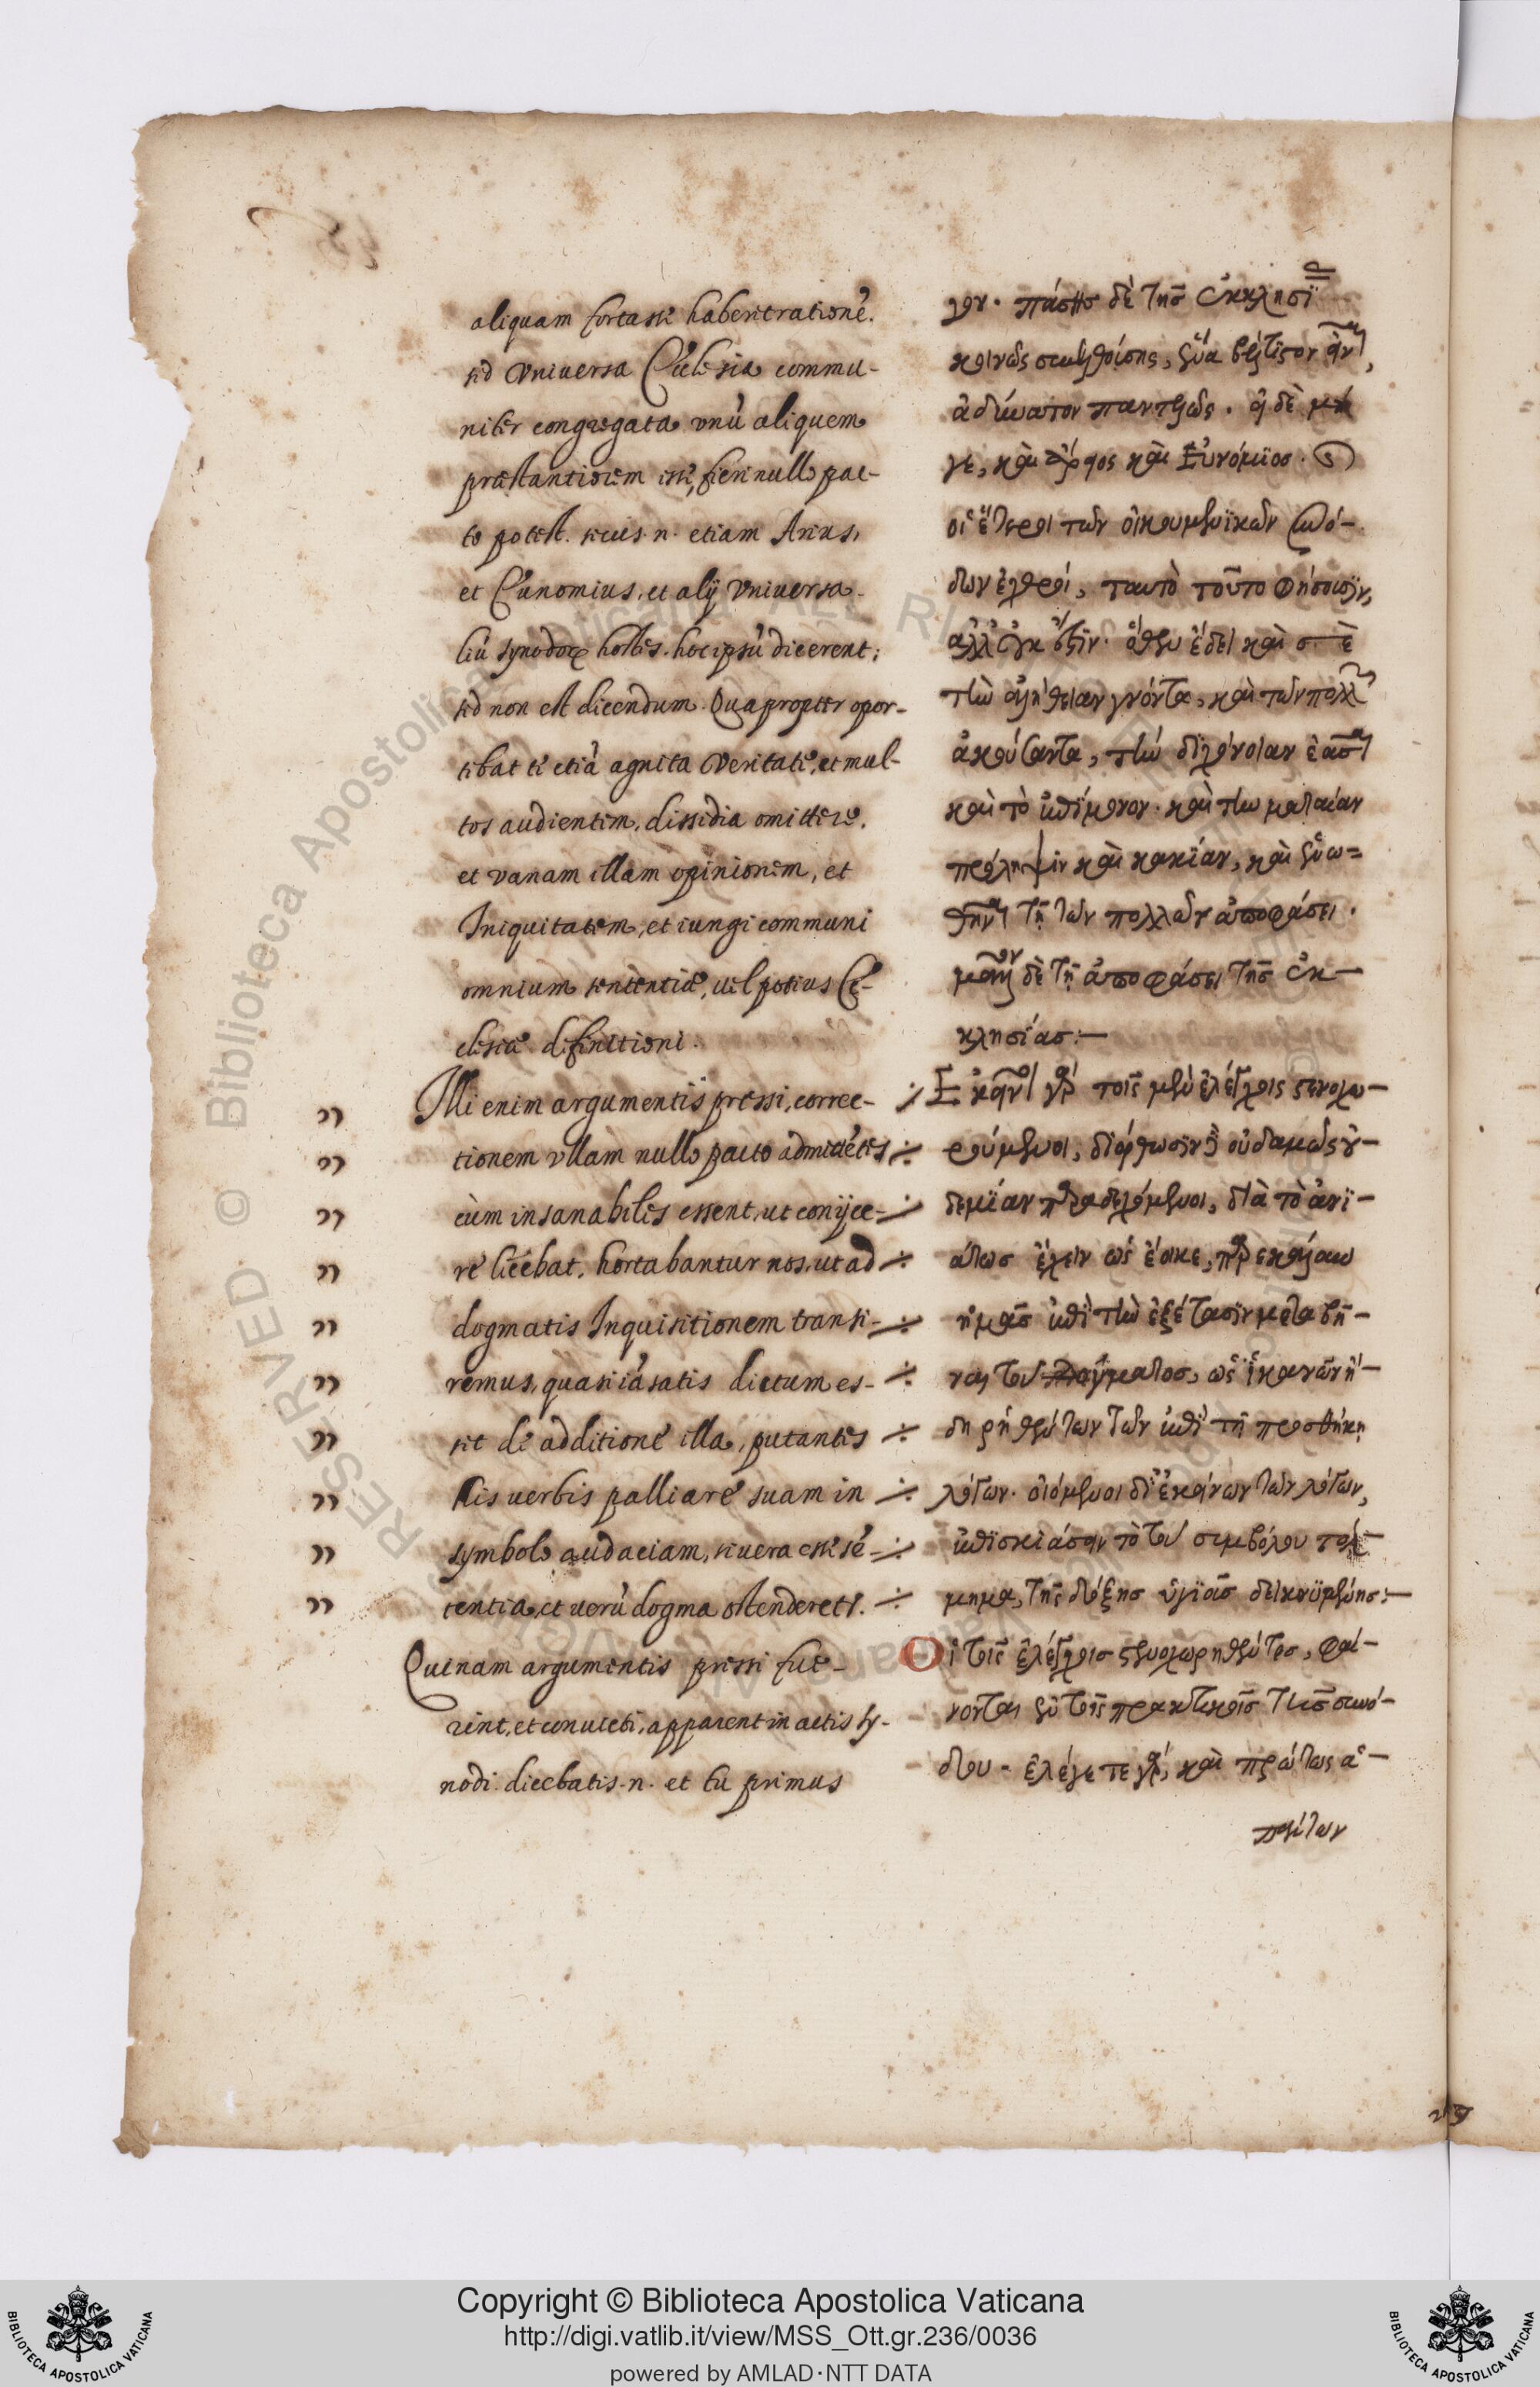 aliquam fortasse haberet rationē.
sed Vniuersa Ecclesia commu-
niter congregata vnū aliquem
præstantiorem esse, fieri nullo pac-
to potest. secus .n. etiam Arius,
et Eunomius, et alij Vniuersa-
liū synodorꝝ hostes, hoc ipsū dicerent;
sed non est dicendum. Quapropter opor-
tebat te etiā agnita Veritate, et mul-
tos audientem, dissidia omittere,
et vanam illam opinionem, et
Iniquitatem, et iungi communi
omnium sententiæ, uel potius Ec-
clesiæ definitioni.
Illi enim argumentis pressi, correc-
tionem vllam nullo pacto admittētes
cùm insanabiles essent, ut conijce-
re licebat, hortabantur nos, ut ad
dogmatis Inquisitionem transi-
remus, quasi iā satis dictum es-
set de additione illa, putantes
his uerbis palliare suam in
symbolo audaciam, si uera esse sē-
tentia, et uerū dogma ostenderetr.
Quænam argumentis pressi fue-
rint, et conuicti, apparent in actis sy-
nodi. dicebatis .n. et tu primus
γου. πάσης δὲ τῆς ἐκκλησί
κοινῶς συνελθούσης, ἕνα βελτίονα εἶναι,
ἀδύνατον παντελῶς. εἰ δὲ μή
γε, καὶ Ἄρειος καὶ Εὐνόμιος. καὶ
οἱ ἕτεροι τῶν οἰκουμενικῶν συνό-
δων ἐχθροί, ταυτὸ τοῦτο φήσουσιν,
ἀλλ' οὐκ ἔστιν. ὅθεν ἔδει καὶ σὲ
τὴν ἀλήθειαν γνόντα, καὶ τῶν πολλῶν
ἀκούσαντα, τὴν διχόνοιαν ἐᾶσαι
καὶ τὸ . καὶ τὴν ματαίαν
πρόληψιν καὶ κακίαν, καὶ ἑνω=
θῆναι τῇ τῶν πολλῶν ἀποφάσει.
μᾶλλον δὲ τῇ ἀποφάσει τῆς ἐκ-
κλησίας:-
Ἐκεῖνοι γὰρ τοῖς μὲν ἐλέγχοις στενοχω-
ρούμενοι, διόρθωσιν δὲ οὐδαμῶς οὐ-
δεμίαν παραδεχόμενοι, διὰ τὸ ἀνι-
άτως ἔχειν ὡς ἔοικε, παρεκάλουν
ἡμᾶς ἐπὶ τὴν ἐξέτασιν μεταβῆ-
ναι τοῦ δόγματος, ὡς ἱκανῶν ἤ-
δη ῥηθέντων τῶν ἐπὶ τῇ προσθήκῃ
λόγων. οἰόμενοι δι' ἐκείνων τῶν λόγων,
ἐπισκιάσαι τὸ τοῦ συμβόλου τόλ-
μημα, τῆς δόξης ὑγιᾶς δεικνυμένης:-
Οἱ τοῖς ἐλέγχοις στενοχωρηθέντες, φαί-
νονται ἐν τοῖς πρακτικοῖς τῆς συνό-
δου. ἐλέγετε γὰρ, καὶ πρώτως ἁ-
πάντων
Copyright © Biblioteca Apostolica Vaticana
http://digi.vatlib.it/view/MSS_Ott.gr.236/0036
powered by AMLAD·NTT DATA